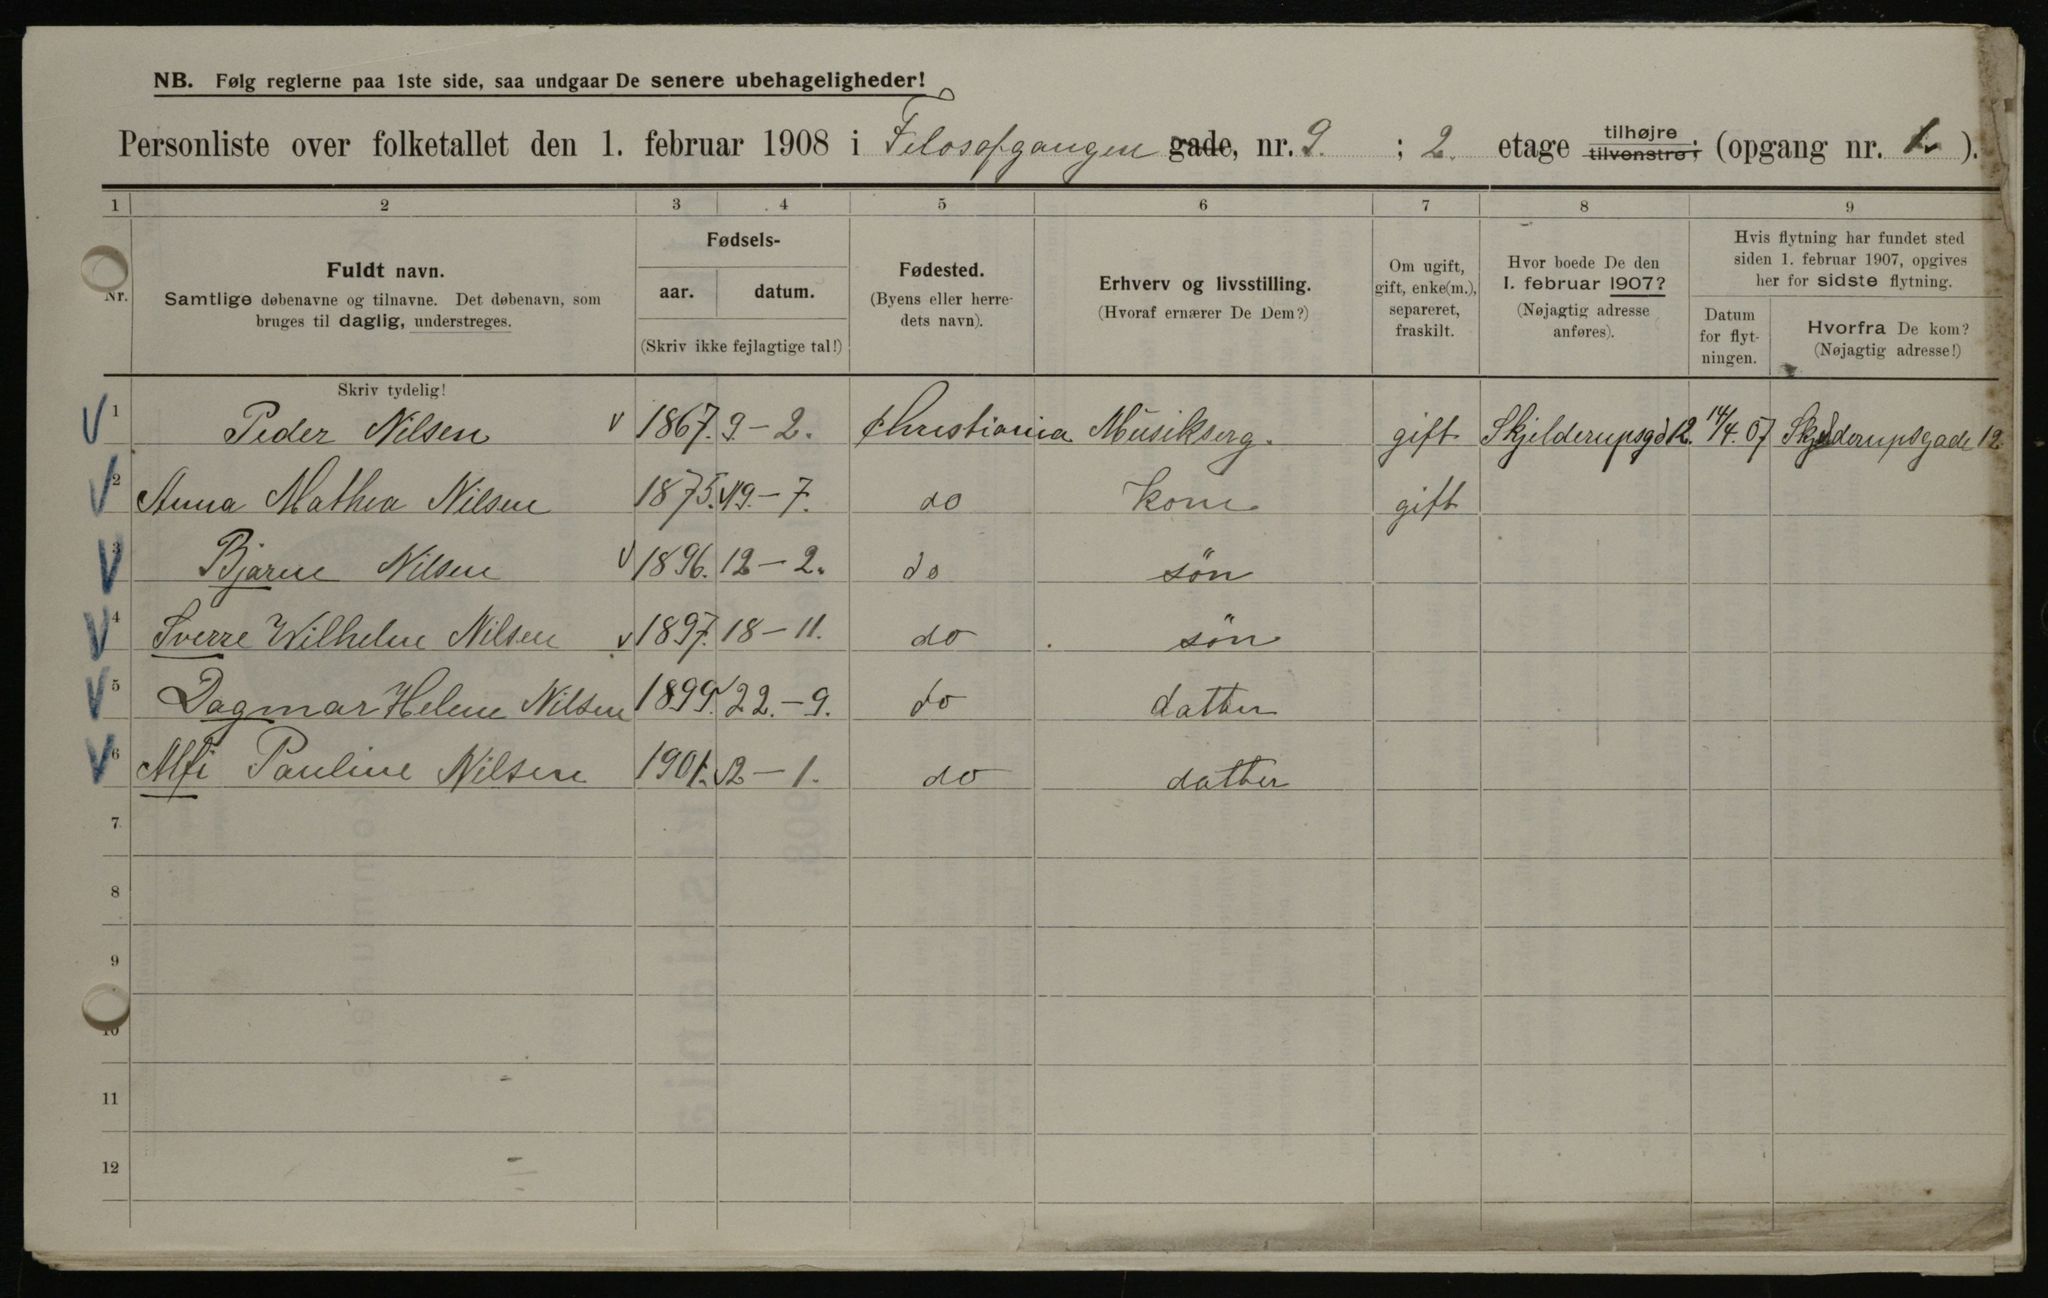 NB. Følg reglerne paa 1ste side, saa undgaar De senere ubehageligheder!
Personliste over folketallet den 1. februar 1908 i Filosofgangen gade, nr. 9. ; 2. etage tilhøjre tilvenstre; (opgang nr. 1. ).
1 2 3 4 5 6 7 8 9
Nr.
Fuldt navn.
Samtlige døbenavne og tilnavne. Det døbenavn, som
bruges til daglig, understreges.
Fødsels-
aar. datum.
(Skriv ikke fejlagtige tal!)
Fødested.
(Byens eller herre-
dets navn).
Erhverv og livsstilling.
(Hvoraf ernærer De Dem?)
Om ugift,
gift, enke(m.),
separeret,
fraskilt.
Hvor boede De den
1. februar 1907?
(Nøjagtig adresse
anføres).
Hvis flytning har fundet sted
siden 1. februar 1907, opgives
her for sidste flytning.
Datum
for flyt-
ningen.
Hvorfra De kom?
(Nøjagtig adresse!)
Skriv tydelig!
1 Peder Nilsen 1867. 9 – 2. Christiania Musikserg. gift Skjelderupsgd 12. 14/4. 07 Skjelderupsgade 12.
2 Anna Mathea Nilsen 1875. 19. – 7. do kone gift
3 Bjarne Nilsen 1896. 12 – 2. do søn
4 Sverre Wilhelm Nilsen 1897. 18 – 11. do søn
5 Dagmar Helene Nilsen 1899. 22. – 9. do datter
6 Alfi Pauline Nilsen 1901. 2 – 1. do datter
7
8
9
10
11
12